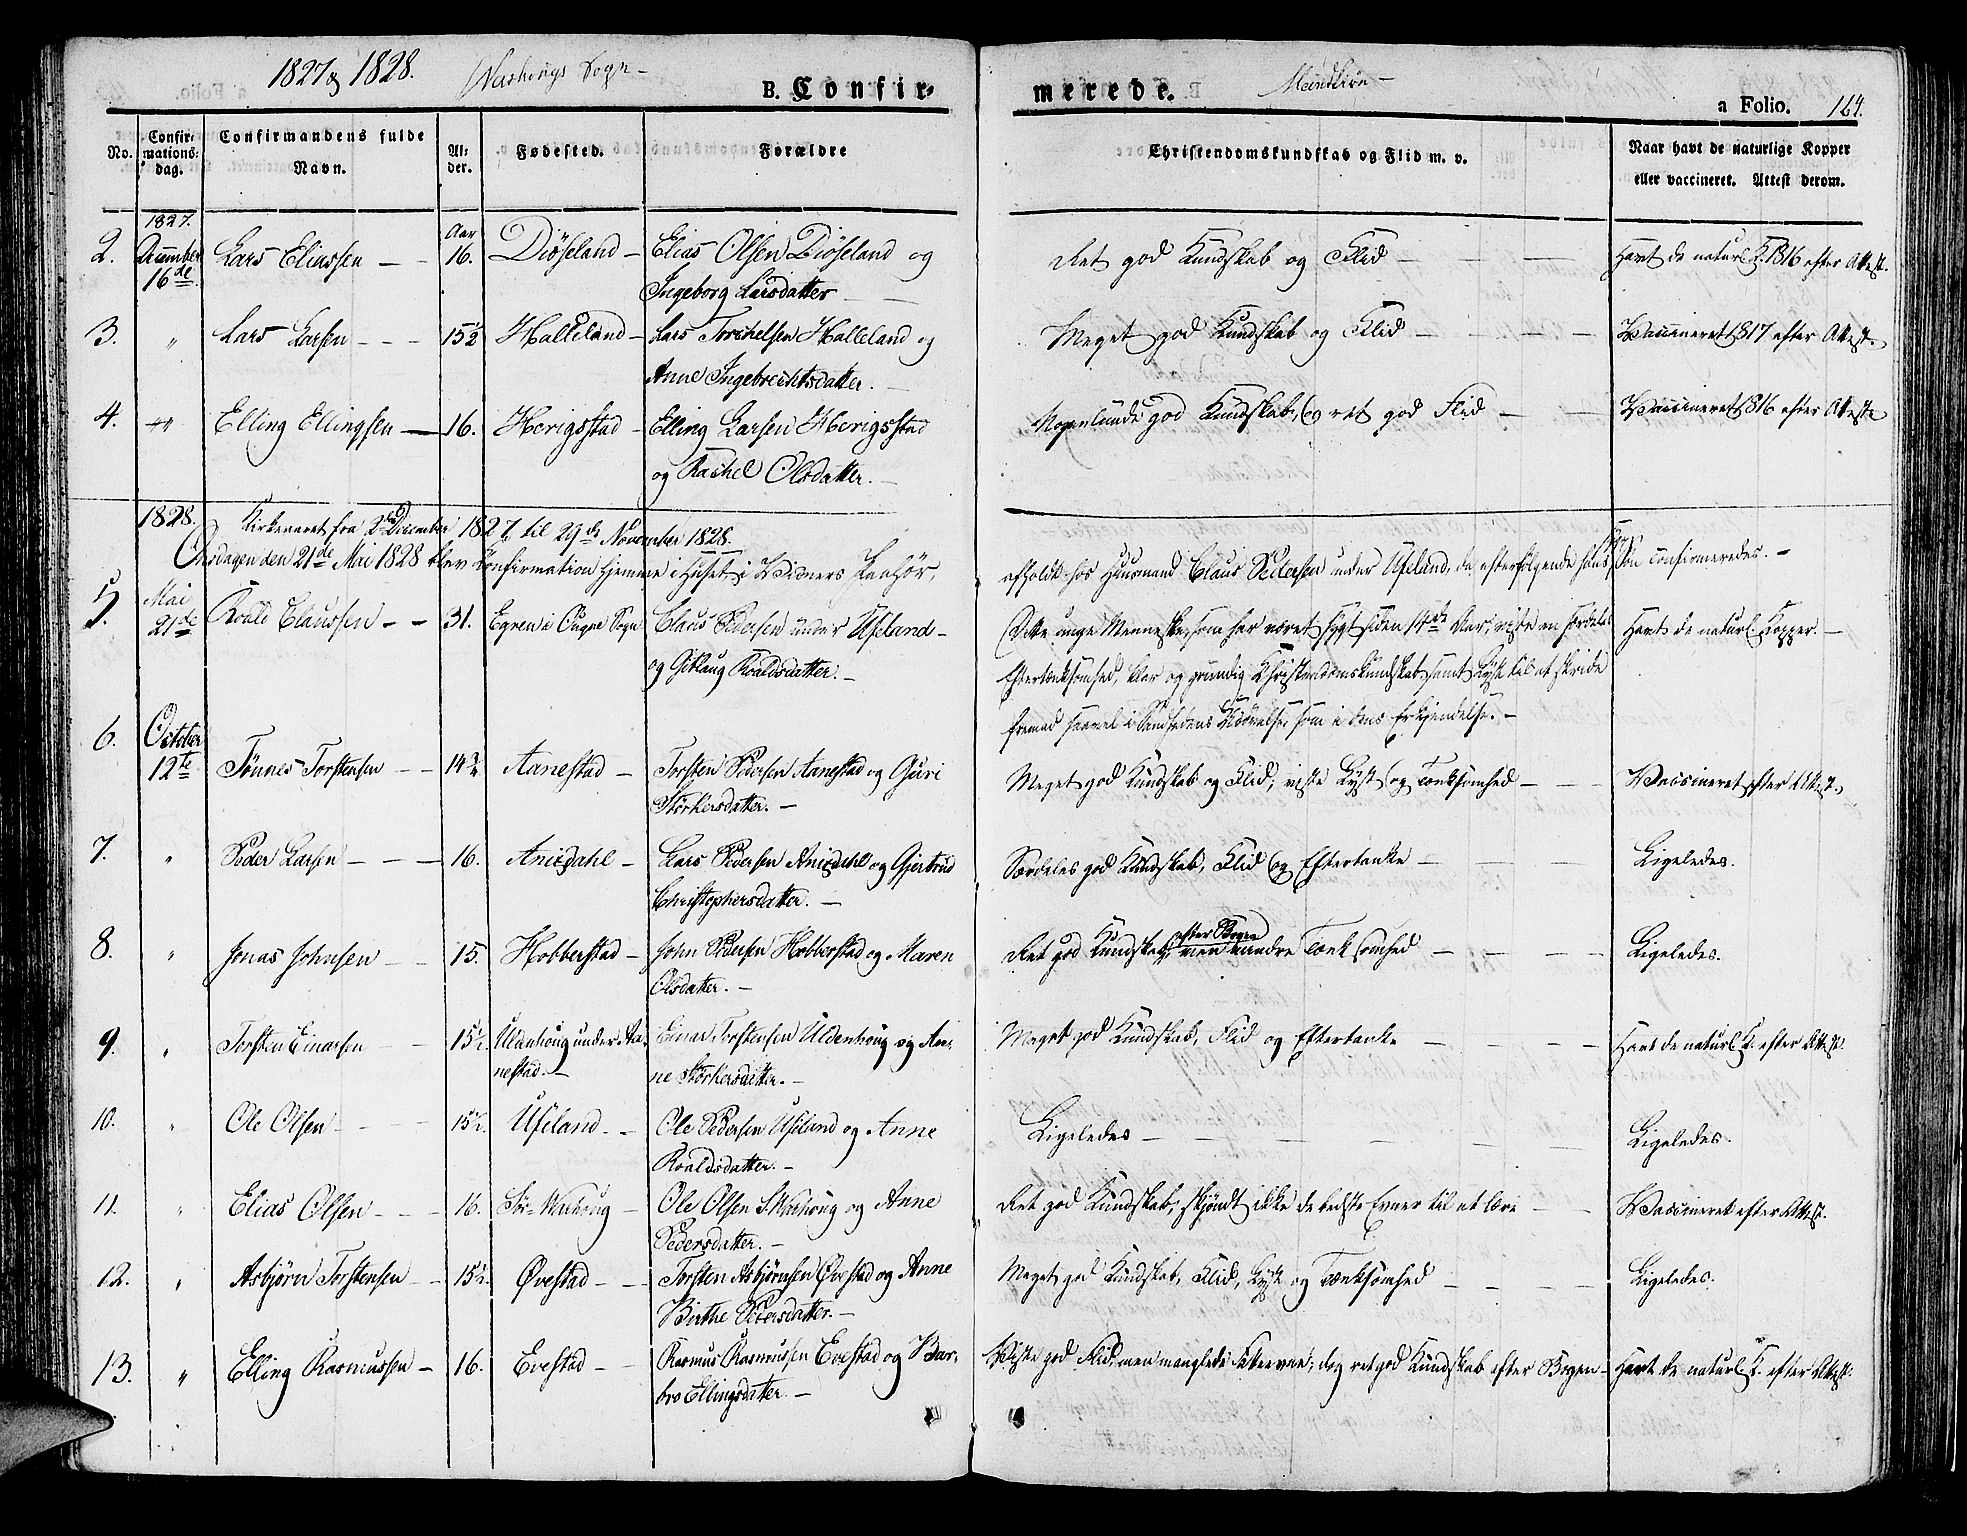 1827 & 1828. Warhougs Sogn –
B. Confir-
merede.
Mandkiøn –
a Folio. 164.
No.
Confir-
mations-
dag.
Confirmandens fulde
Navn.
Al-
der.
Fødested.
Forældre
Christendomskundskab og Flid m. v.
Naar havt de naturlige Kopper
eller vaccineret. Attest derom.
1827.
Aar
2. December Lars Eliassen – – 16. Diøseland – Elias Olsen Diøseland og Ret god Kundskab og Flid – – – Havt de naturl. K. 1816 efter Attest.
16de Ingeborg Larsdatter –
3. " Lars Larsen – – – 15½ Halleland – Lars Torkelsen Halleland og Meget god Kundskab og Flid – – – Vaccineret 1817 efter Attest.
Anne Ingebrechtsdatter. –
4. " Elling Ellingsen – 16. Herigsstad – Elling Larsen Herigsstad Nogenlunde god Kundskab, og ret god Flid – – Vaccineret 1816 efter Attest
og Rachel Olsdatter. –
1828. Kirkeaaret fra 2den December 1827 til 29de November 1828.
Onsdagen den 21de Mai 1828 blev Confirmation hjemme i Huset i Vidners Paahør,
afholdt hos Huusmand Claus Pedersen under Useland, da efterfølgende hans Søn confirmeredes. –
5. Mai Roald Claussen – – 31. Egren i Ougne Sogn Claus Pedersen under Useland – Dette unge Menneske, som har været sygt siden 14de Aar, viste en særdeles Havt de naturl. Kopper. –
21de og Giblaug Roaldsdatter. – Eftertænksomhed, klar og grundig Christendomskundskab samt Lyst til at skride
fremad saavel i Sandhedens Udøvelse som i dens Erkjendelse. –
6. October
12te Tønnes Torstensen – – 14¾ Aanestad – Torsten Pedersen Aanestad og Guri Meget god Kundskab og Flid, viste Lyst og Tænksomhed – – – Vaccineret efter Attest.
Størkersdatter. –
7. " Peder Larsen – – – 16. Anisdahl – Lars Pedersen Anisdahl og Gjertrud Særdeles god Kundskab, Flid og Eftertanke – – – Ligeledes.
Christophersdatter. –
8. " Jonas Johnsen – 15. Hobberstad – John Pedersen Hobberstad og Maren Ret god Kundskab efter Bogen, men mindre Tænksomhed – – – – Ligeledes.
Olsdatter. –
9. " Torsten Einarsen – – 15½. Uldenhoug under Aa- Einar Torstensen Uldenhoug og An- Meget god Kundskab, Flid og Eftertanke – – – – Havt de naturl. K. efter Attest.
nestad. – ne Størkersdatter. –
10. " Ole Olsen – – 15½. Useland – – Ole Pedersen Useland og Anne Ligeledes – – – – – – Ligeledes.
Roaldsdatter. –
11. " Elias Olsen – – – 16. Sør-Warhoug – Ole Olsen S. Warhoug og Anne Ret god Kundskab, skjøndt ikke de bedste Evner til at lære – – Vaccineret efter Attest.
Pedersdatter. –
12. " Asbjørn Torstensen – 15½. Øvestad – – Torsten Asbjørnsen Øvestad og Anne Meget god Kundskab, Flid, Lyst og Tænksomhed – – – Ligeledes.
Birthe Pedersdatter. –
13. " Elling Rasmussen – 16. Evestad – – Rasmus Rasmussen Evestad og Bar- Viste god Flid, men manglede Fatteevne; dog ret god Kundskab efter Bogen – Havt de naturl. K. efter Attest.
bro Ellingsdatter. –